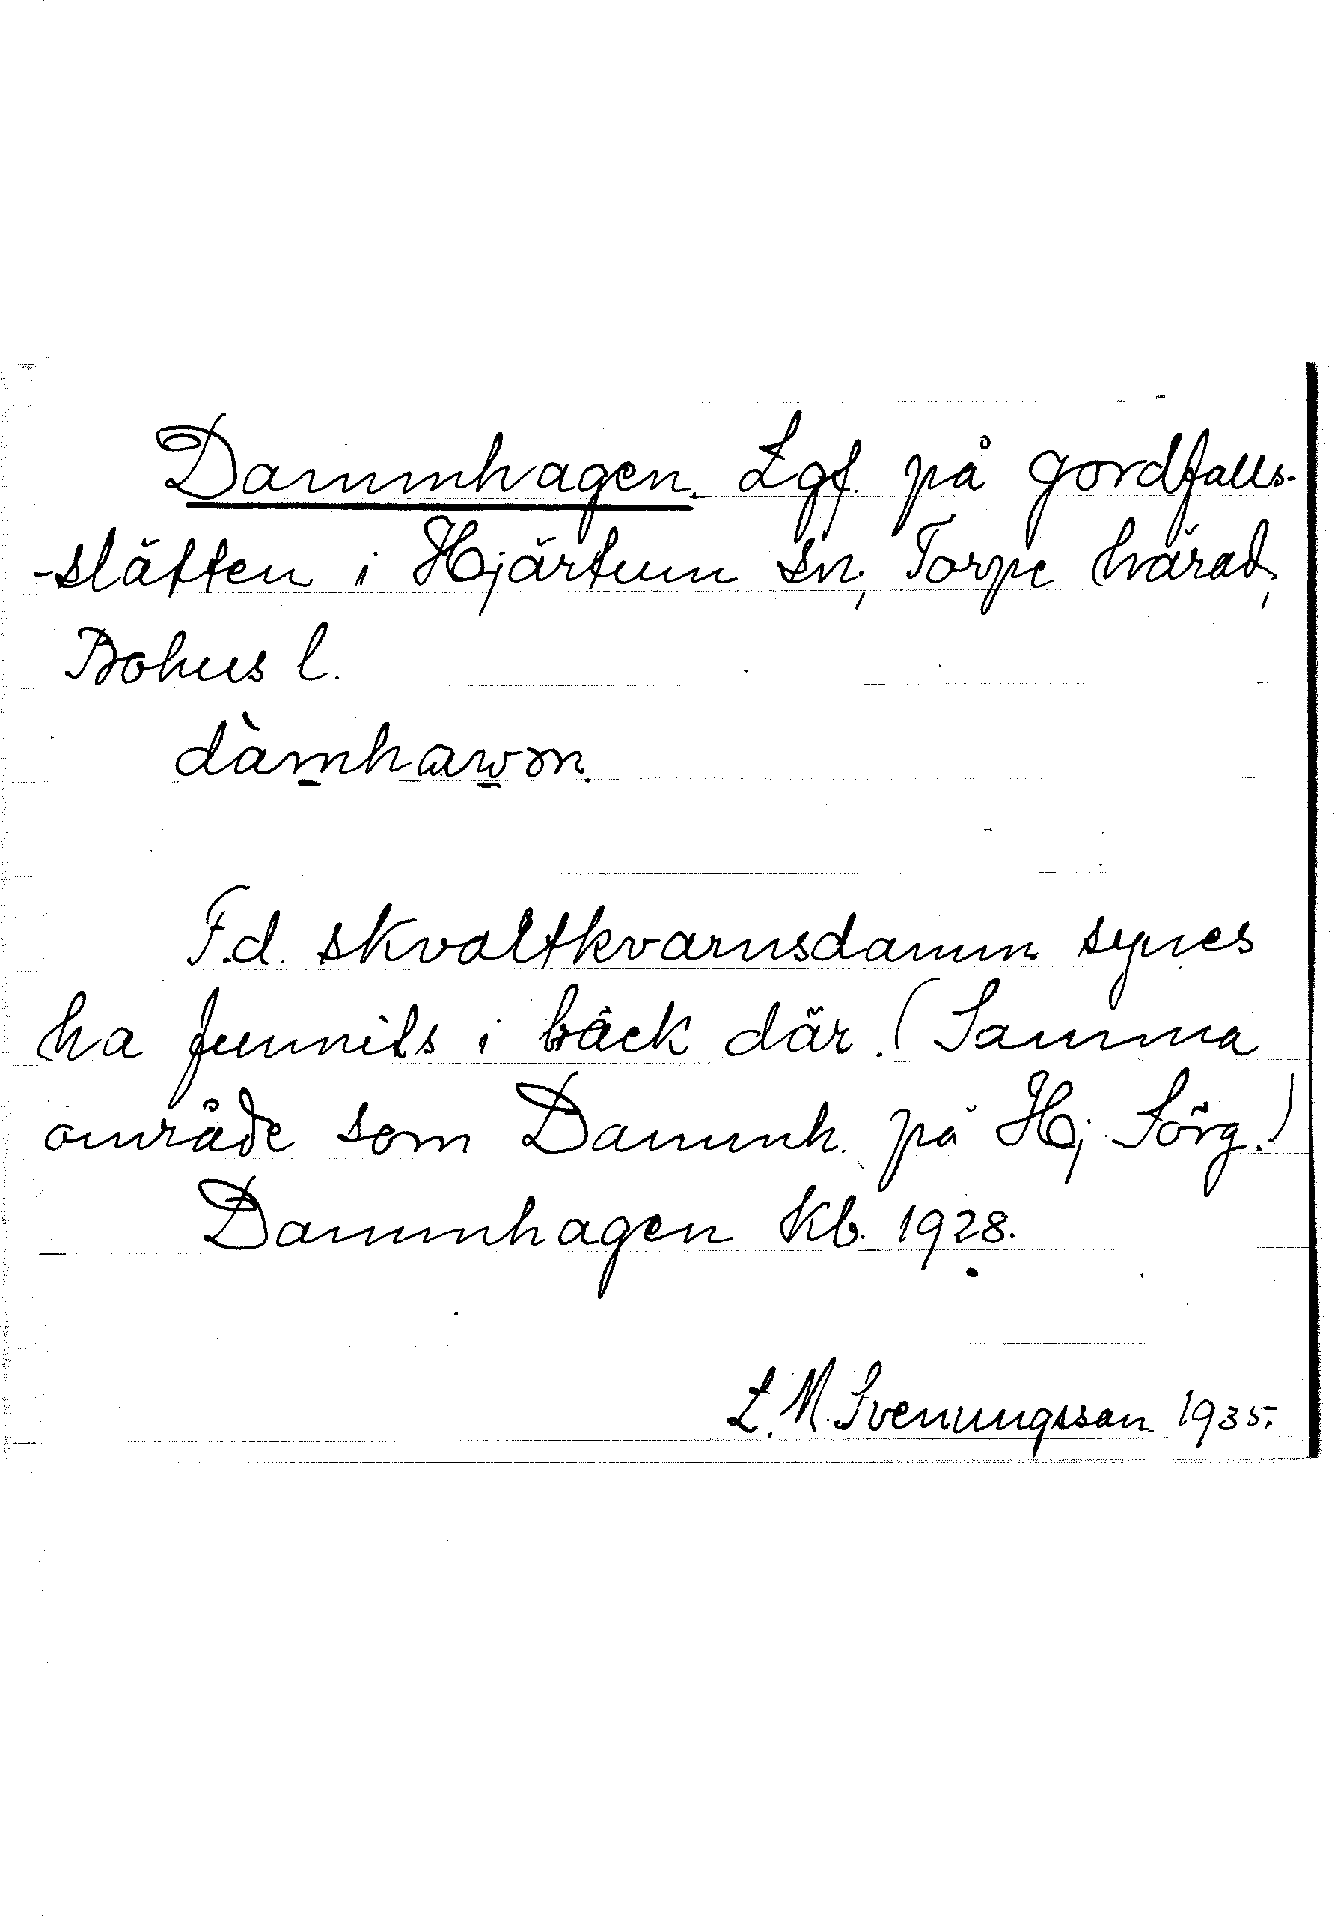 Dammhagen. Lgf. på Jordfalls-
-slätten i Hjärtum sn, Torpe härad,
Bohus l.
dàmhawən.
F.d. skvaltkvarnsdamm synes
ha funnits i bäck där. (Samma
område som Dammh. på Hj. Sörg.)
Dammhagen Kb. 1928.
L. M. Svenungsson 1935.